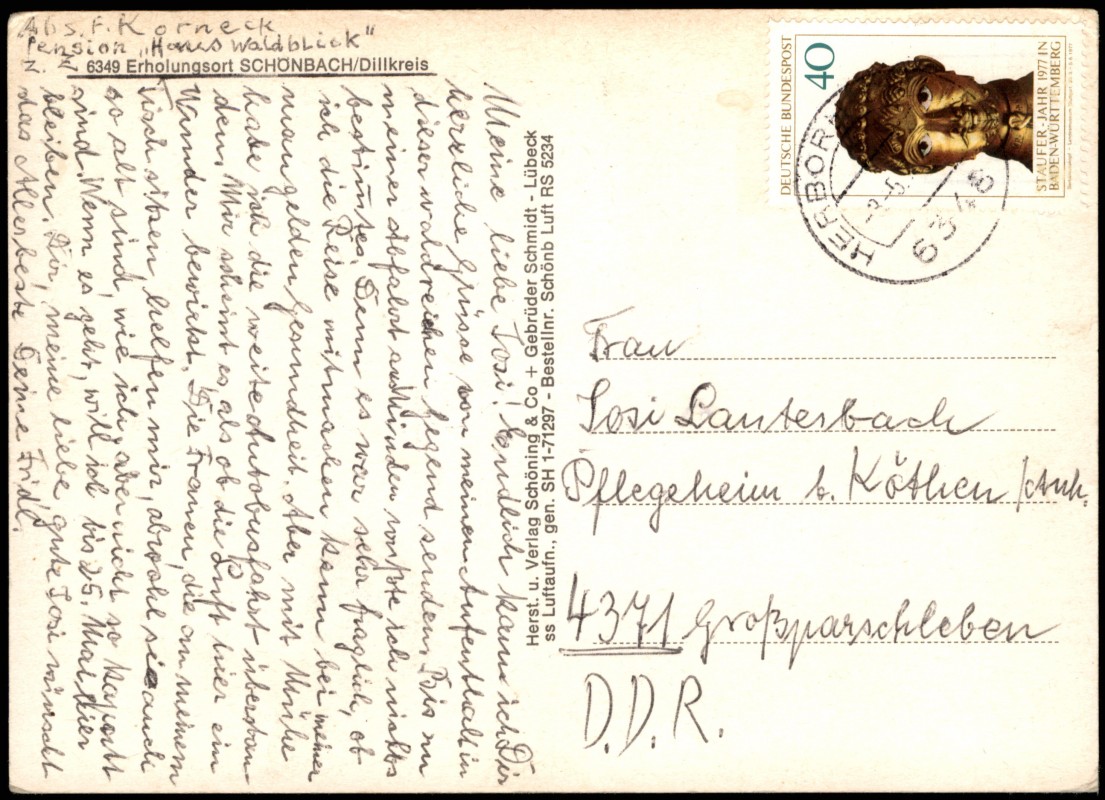 Abs. F. Korneck
Pension „Haus Waldblick"
z. Z.
6349 Erholungsort SCHÖNBACH/Dillkreis
Meine liebe Sosi! Endlich kann ich Dir
herzliche Grüsse von meinem Aufenthalt in
dieser waldreichen Gegend senden. Bis zu
meiner Abfahrt auf hinden wußte ich nichts
bestimmtes. Denn es war sehr fraglich, ob
ich die Reise mitmachen kann bei meiner
mangelnden Gesundheit. Aber mit Mühe
habe ich die weite Autobusfahrt überstan-
den. Mir scheint es als ob die Luft hier ein
Wunder bewirkt. Die Frauen, die an meinem
Tisch sitzen, helfen mir, obwohl sie auch
so alt sind, wie ich, aber nicht so kaputt
sind. Wenn es geht, will ich bis 25. Mai hier
bleiben. Dir, meine liebe, gute Sosi wünscht
das Allerbeste Deine Fridl.
Herst. u. Verlag Schöning & Co + Gebrüder Schmidt - Lübeck
ss Luftaufn., gen. SH 1-71297 - Bestellnr. Schönb Luft RS 5234
DEUTSCHE BUNDESPOST
40
STAUFER-JAHR 1977 IN
BADEN-WÜRTTEMBERG
HERBORN
6348
Frau
Sosi Lauterbach
Pflegeheim b. Köthen/Anh.
4371 Großparschleben
D.D.R.